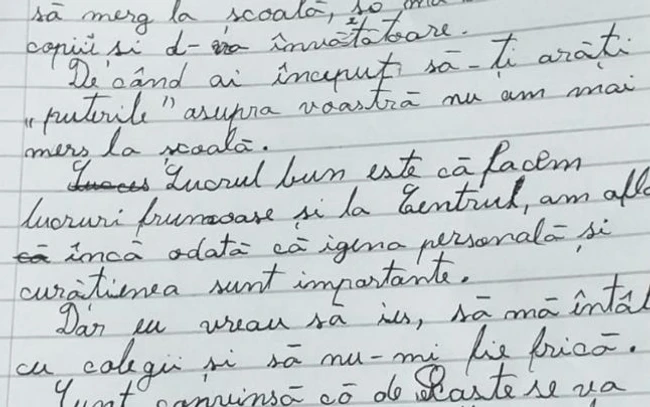 să merg la școală, so
copiii si d-na învățătoare.
De când ai început să-ți arăți
"puterile" asupra voastră nu am mai
mers la școală.
Lucrul bun este că facem
lucruri frumoase și la Centrul, am afl
că încă odată că igena personală și
curățienea sunt importante.
Dar eu vreau să ies, să mă întâl
cu colegii și să nu-mi fie frică.
Sunt convinsă că de Paste se va